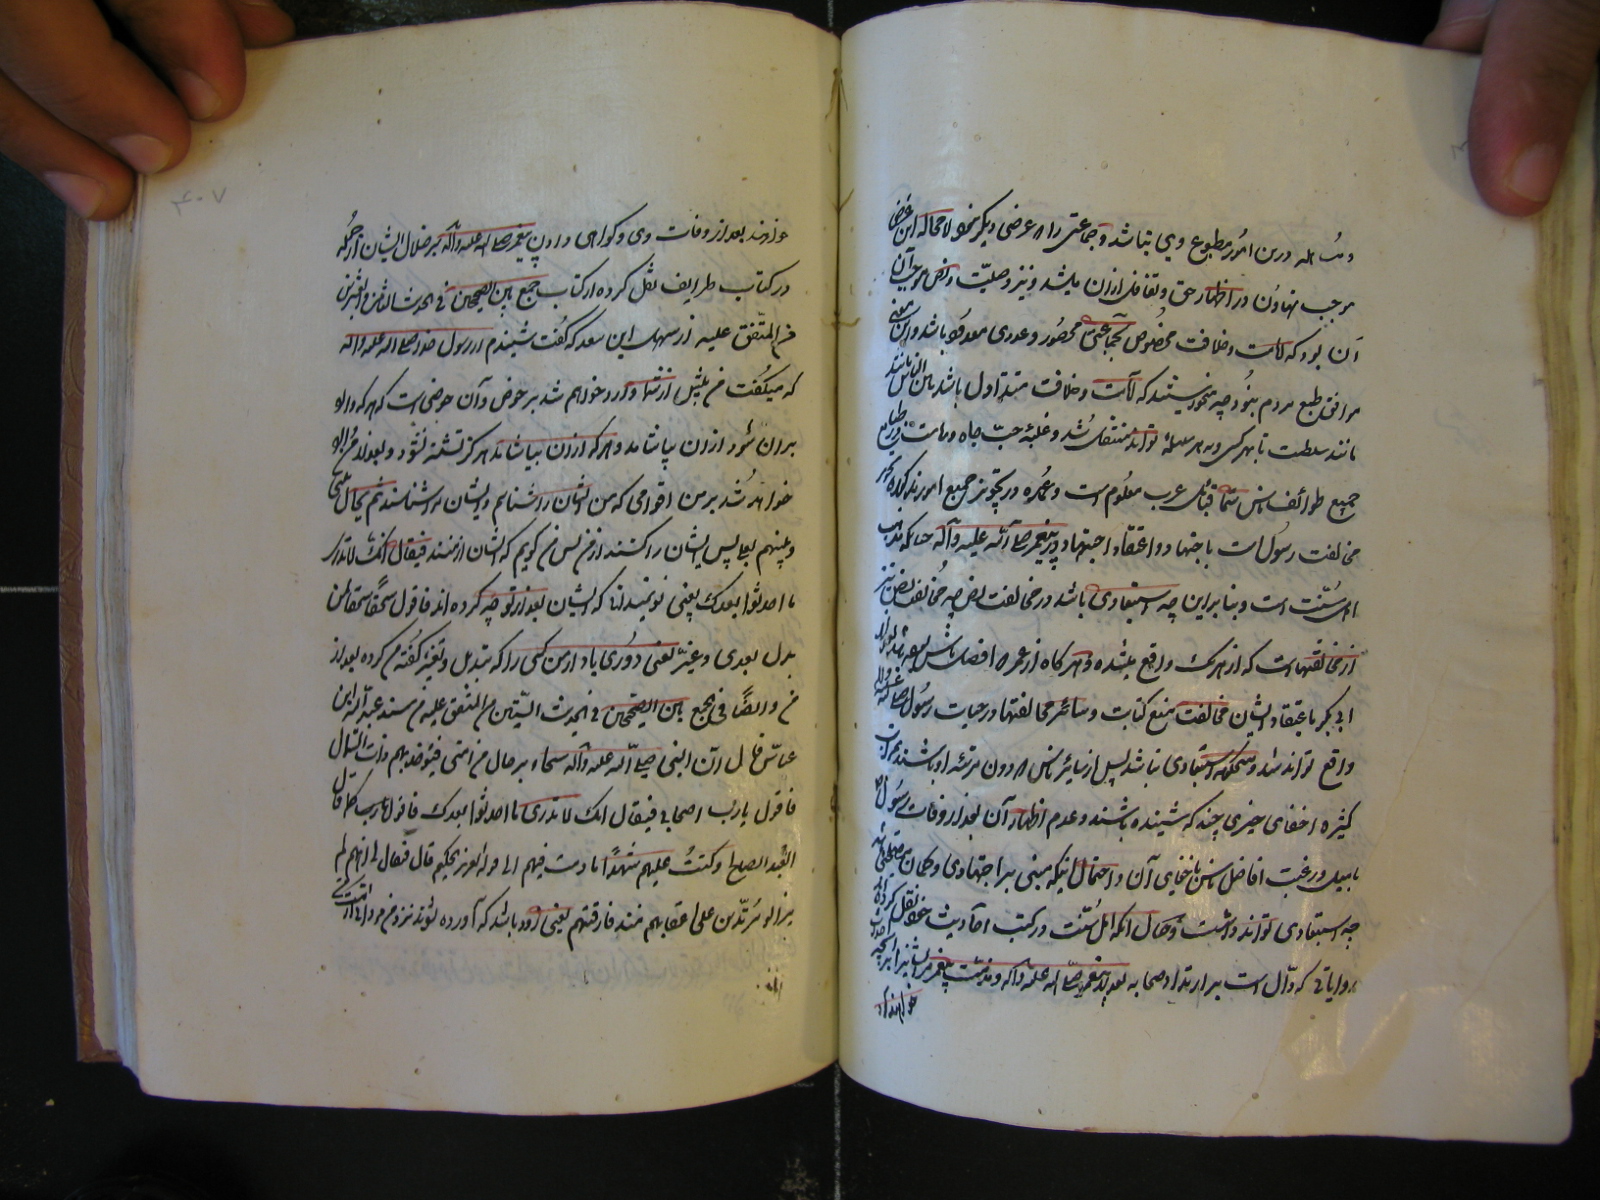 درین امور مطبوع وی نباشد و جماعتی را عرضی دیگر نحو لا محاله این غرض
موجب تهاون در اظهار حق و تغافل ازان باشد و نیز وصلیت و نص موجب آن
آن بود که امامت و خلافت مخصوص بجماعتی محصور و عددی معدود باشد و این معنی
موافق طبع مردم نبود چه میخواستند که امامت و خلافت متداول باشد بین الناس
مانند سلطنت تا بهر کس و بهر سلسله تواند منتقل شد و غلبه حب جاه و ریاست در طبایع
جمیع طوائف ناس سیما قبائل عرب معلوم است و عمده در تجویز جمیع امور مذکوره
مخالفت رسول است باجتهاد و اعتقاد اجتهاد در پیغمبر صلی الله علیه وآله چنانکه مذهب
اهل سنت است و بنا برین چه استبعادی باشد در مخالفت نص چه مخالفت نص نیز
از مخالفتهاست که از هر یک واقع میشده و هر گاه از عمر افضل ناس
ابی بکر باعتقاد ایشان مخالفت منع کتابت و سائر مخالفتها در حیات رسول
واقع تواند شد و هیچگونه استبعادی نباشد پس از سایر ناس دون مرتبه او باشند
کثیره اخفای خبری چند که شنیده باشند و عدم اظهار آن بعد از وفات رسول
با میل و رغبت افاضل ناس باخفای آن و احتمال اینکه مبنی بر اجتهادی و گمان مصلحتی باشد
چه استبعادی تواند داشت و حال آنکه اهل سنت در کتب احادیث خود نقل کرده‌اند
روایاتی که دال است بر ارتداد صحابه بعد از پیغمبر صلی الله علیه وآله و مذمت پیغمبر
خواهند داد
۴۰۷
بعد از وفات وی و گواهی دادن پیغمبر صلی الله علیه وآله بر ضلال ایشان از جمله
در کتاب طرایف نقل کرده از کتاب جمع بین الصحیحین فی الحدیث الثامن والعشرین
من المتفق علیه از سهل ابن سعد که گفت شنیدم از رسول خدا صلی الله علیه وآله
که میگفت من پیش از شما وارد خواهم شد بر حوض و آن حوضی است که هر که وارد
بر آن شود ازان بیاشامد و هر که ازان بیاشامد هرگز تشنه نشود و بعد ازان
خواهد شد بر من اقوامی که من ایشان را شناسم و ایشان مرا شناسند ثم یحال بینی
و بینهم یعنی پس ایشان را کشند از من پس من گویم که ایشان از منند فیقال انک لا تدری
ما احدثوا بعدک یعنی تو نمیدانی که ایشان بعد از تو چه کرده اند فاقول سحقا سحقا لمن
بدل بعدی و غیر یعنی دوری باد از من کسی را که تبدیل و تغییر گفته من کرده بعد از
من و ایضا فی الجمع بین الصحیحین فی الحدیث الستین من المتفق علیه من مسند عبدالله ابن
عباس قال ان النبی صلی الله علیه وآله سیجاء برجال من امتی فیؤخذ بهم ذات الشمال
فاقول یا رب اصحابی فیقال انک لا تدری ما احدثوا بعدک فاقول کما قال
العبد الصالح و کنت علیهم شهیدا ما دمت فیهم الی قوله العزیز الحکیم قال فیقال لی انهم لم
یزالوا مرتدین علی اعقابهم منذ فارقتهم یعنی زود باشد که آورده شوند نزد من مردان از امت